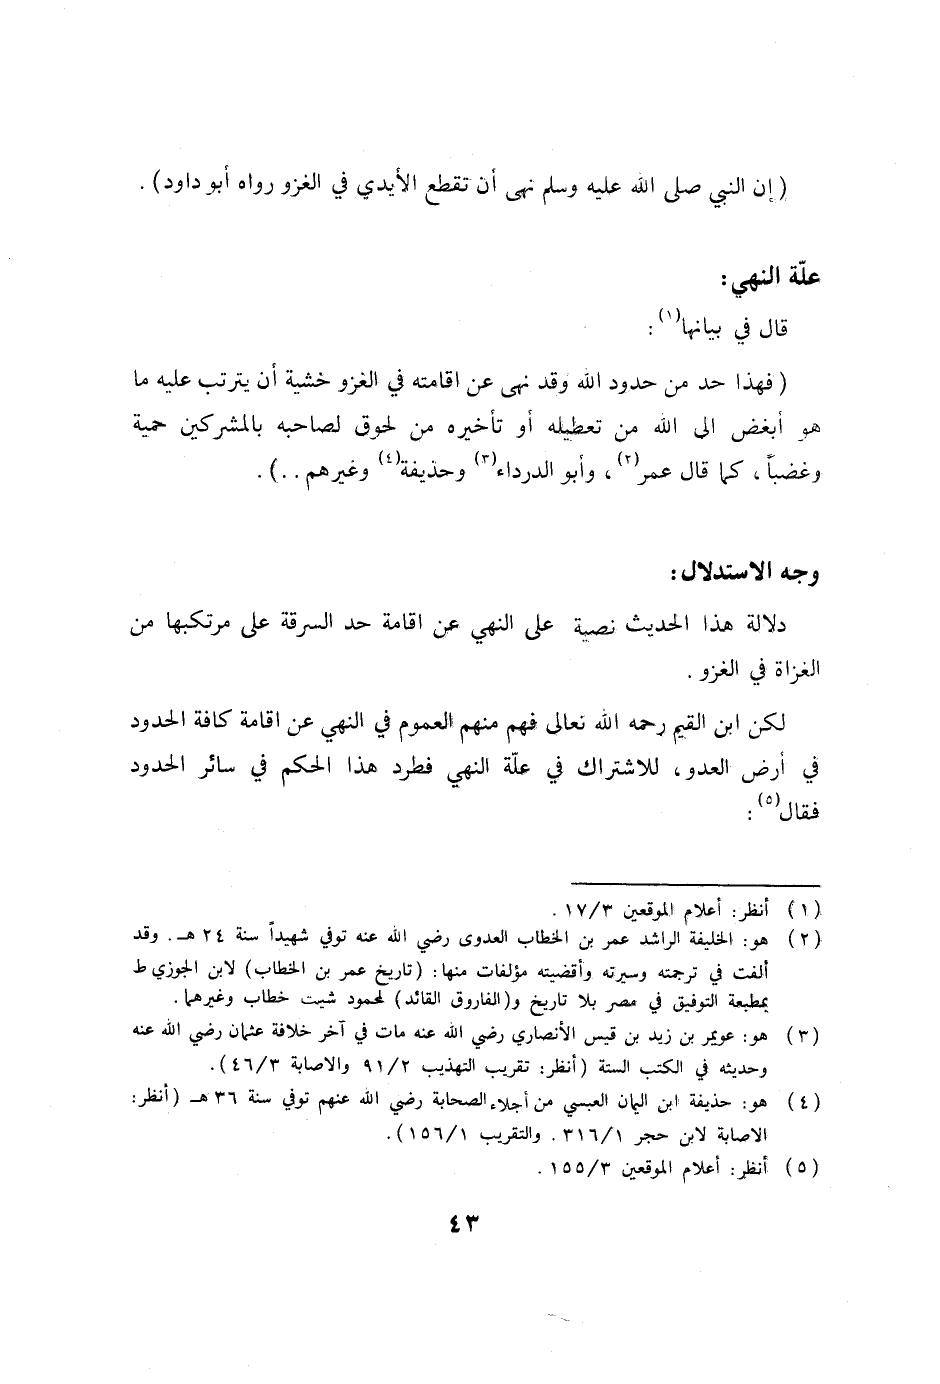 (إن النبي صلى الله عليه وسلم نهى أن تقطع الأيدي في الغزو رواه أبو داود) .
علّة النهي:
قال في بيانها(١) :
(فهذا حد من حدود الله وقد نهى عن اقامته في الغزو خشية أن يترتب عليه ما
هو أبغض الى الله من تعطيله أو تأخيره من لحوق لصاحبه بالمشركين حمية
وغضباً ، كما قال عمر(٢) ، وأبو الدرداء(٣) وحذيفة(٤) وغيرهم . .) .
وجه الاستدلال:
دلالة هذا الحديث نصية على النهي عن اقامة حد السرقة على مرتكبها من
الغزاة في الغزو .
لكن ابن القيم رحمه الله تعالى فهم منهم العموم في النهي عن اقامة كافة الحدود
في أرض العدو ، للاشتراك في علّة النهي فطرد هذا الحكم في سائر الحدود
فقال(٥) :
(١) أنظر: أعلام الموقعين ١٧/٣ .
(٢) هو: الخليفة الراشد عمر بن الخطاب العدوى رضي الله عنه توفي شهيداً سنة ٢٤ هـ . وقد
ألفت في ترجمته وسيرته وأقضيته مؤلفات منها: (تاريخ عمر بن الخطاب) لابن الجوزي ط
بمطبعة التوفيق في مصر بلا تاريخ و(الفاروق القائد) لمحمود شيت خطاب وغيرهما .
(٣) هو: عويمر بن زيد بن قيس الأنصاري رضي الله عنه مات في آخر خلافة عثمان رضي الله عنه
وحديثه في الكتب الستة (أنظر: تقريب التهذيب ٩١/٢ والاصابة ٤٦/٣) .
(٤) هو: حذيفة ابن اليمان العبسي من أجلاء الصحابة رضي الله عنهم توفي سنة ٣٦ هـ (أنظر:
الاصابة لابن حجر ٣١٦/١ . والتقريب ١٥٦/١) .
(٥) أنظر: أعلام الموقعين ١٥٥/٣ .
٤٣